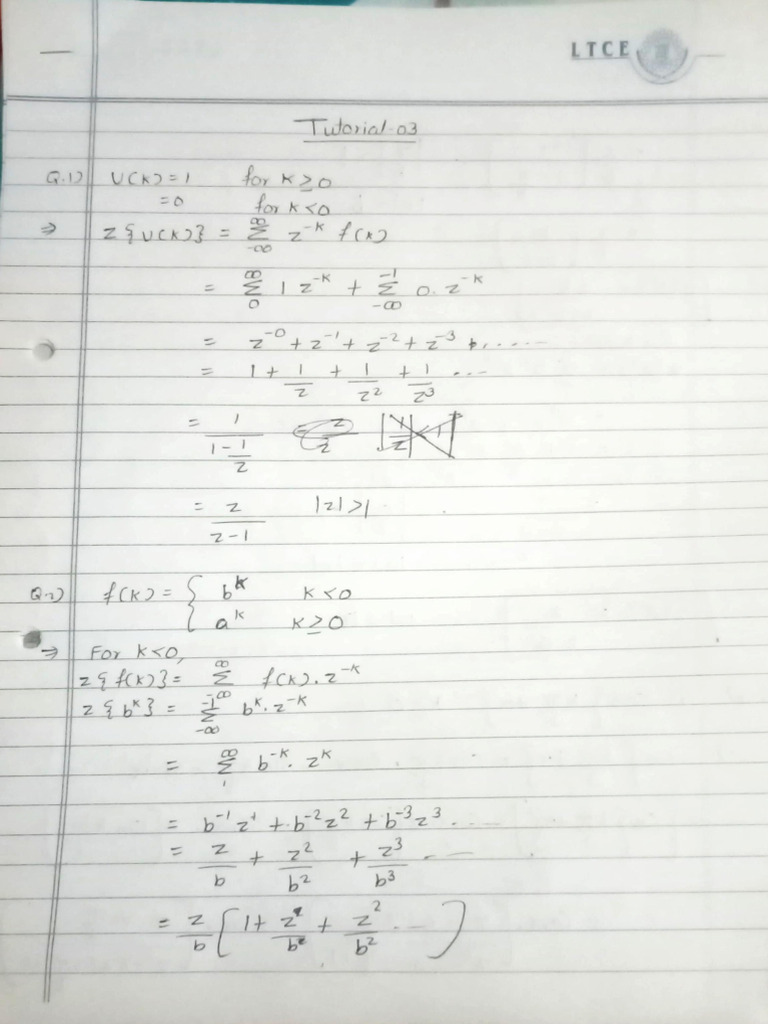 LTCE
Tutorial-03
Q.1) U(K) = 1 for K ≥ 0
= 0 for K < 0
⇒ Z{U(K)} = ∑_{-∞}^{∞} z^{-K} f(K)
= ∑_{0}^{∞} 1 z^{-K} + ∑_{-∞}^{-1} 0. z^{-K}
= z^{-0} + z^{-1} + z^{-2} + z^{-3} + .....
= 1 + 1/z + 1/z^2 + 1/z^3 ...
= 1/(1 - 1/z)
= z/(z-1) |z|>1
Q.2) f(K) = { b^K K < 0
a^K K ≥ 0
⇒ For K < 0,
z{f(K)} = ∑_{-∞}^{∞} f(K). z^{-K}
z{b^K} = ∑_{-∞}^{-1} b^K. z^{-K}
= ∑_{1}^{∞} b^{-K}. z^K
= b^{-1} z^1 + b^{-2} z^2 + b^{-3} z^3 ....
= z/b + z^2/b^2 + z^3/b^3 ...
= z/b [1 + z/b + z^2/b^2 ... ]